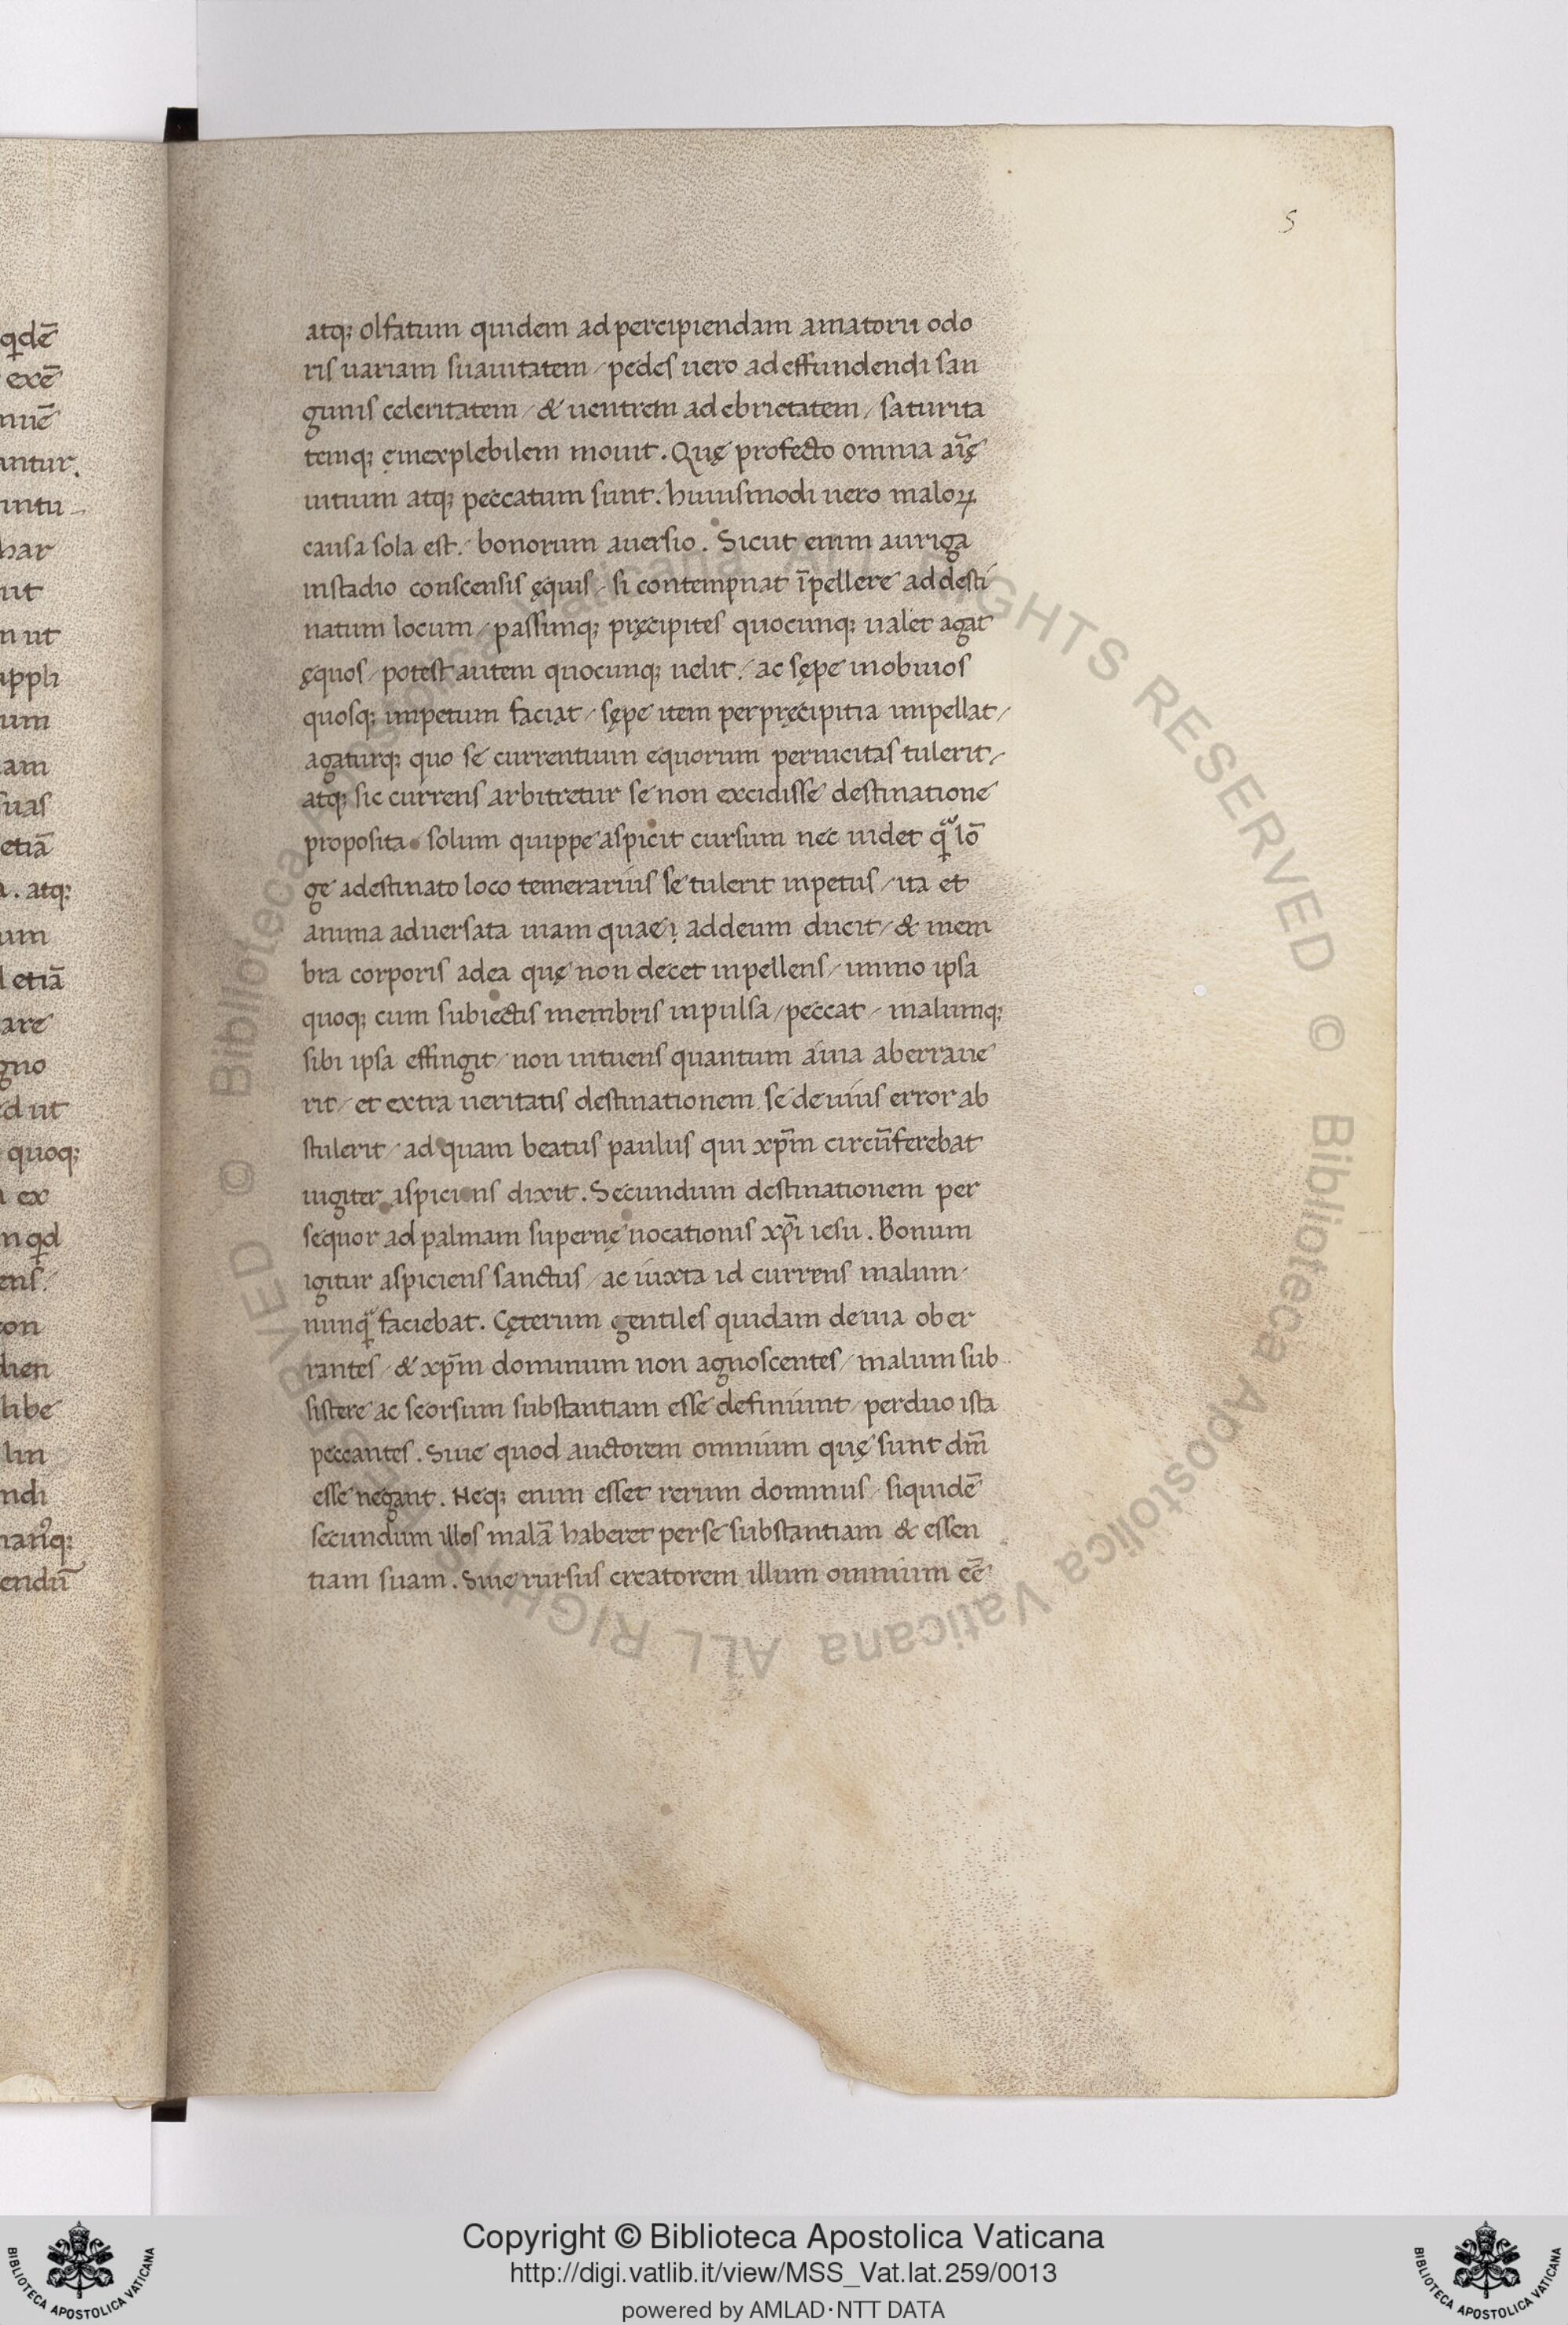 5
atq; olfatum quidem ad percipiendam amatoru odo
ris uariam suauitatem / pedes uero ad effundendi san
guinis celeritatem / & uentrem ad ebrietatem / saturita
temq; ęinexplebilem mouit. Quę profecto omnia aīę
uitium atq; peccatum sunt. huiusmodi uero maloꝝ
causa sola est./ bonorum auersio. Sicut enim auriga
instadio conscensis ęquis / si contempnat īpellere ad desti
natum locum / passimq; pręcipites quocunq; ualet agat
ęquos / potest autem quocunq; uelit / ac sępe inobuios
quosq; impetum faciat / sępe item per pręcipitia impellat /
agaturq; quo se currentium equorum pernicitas tulerit /
atq; sic currens arbitretur se non excidisse destinatione
proposita / solum quippe aspicit cursum nec uidet qͣ lō
ge adestinato loco temerarius se tulerit inpetus / ita et
anima aduersata uiam quae ad deum ducit / & mem
bra corporis adea quę non decet inpellens / immo ipsa
quoq; cum subiectis membris inpulsa / peccat / malumq;
sibi ipsa effingit / non intuens quantum auia aberraue
rit / et extra ueritatis destinationem se deuius error ab
stulerit / ad quam beatus paulus qui xp̄m circūferebat
iugiter aspiciens dixit. Secundum destinationem per
sequor ad palmam supernę uocationis xp̄i iesu. Bonum
igitur aspiciens sanctus / ac iuxta id currens malum
nunqͣ faciebat. Cęterum gentiles quidam deuia ober
rantes / & xp̄m dominum non agnoscentes / malum sub
sistere ac seorsum substantiam esse definiunt / perduo ista
peccantes. Siue quod auctorem omnium quę sunt dm̄
esse negant. Neq; enim esset rerum dominus / siquidē
secundum illos malā haberet perse substantiam & essen
tiam suam. Siue rursus creatorem illum omnium eē
qdē
exē
nuē
antur.
untu
har
ut
n ut
appli
um
am
suas
etiā
a. atq;
um
l etiā
are
gno
ed ut
quoq;
a ex
n qd
ens /
con
dien
libe
lin
ndi
endū
© Biblioteca Apostolica Vaticana ALL RIGHTS RESERVED © Biblioteca Apostolica Vaticana ALL RIGHTS RESERVED
Copyright © Biblioteca Apostolica Vaticana
http://digi.vatlib.it/view/MSS_Vat.lat.259/0013
powered by AMLAD·NTT DATA
BIBLIOTECA APOSTOLICA VATICANA
BIBLIOTECA APOSTOLICA VATICANA